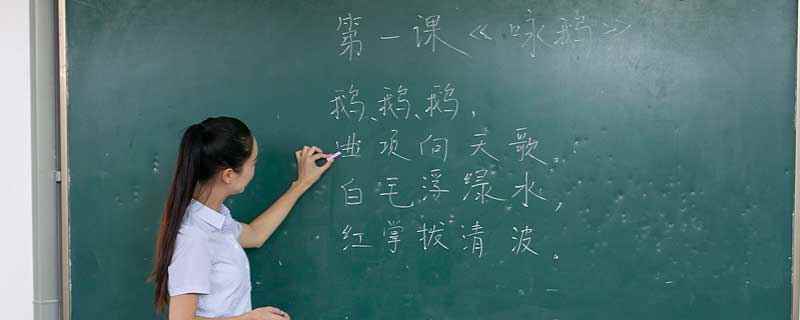 第一课《咏鹅》
鹅、鹅、鹅,
曲项向天歌。
白毛浮绿水,
红掌拨清波。